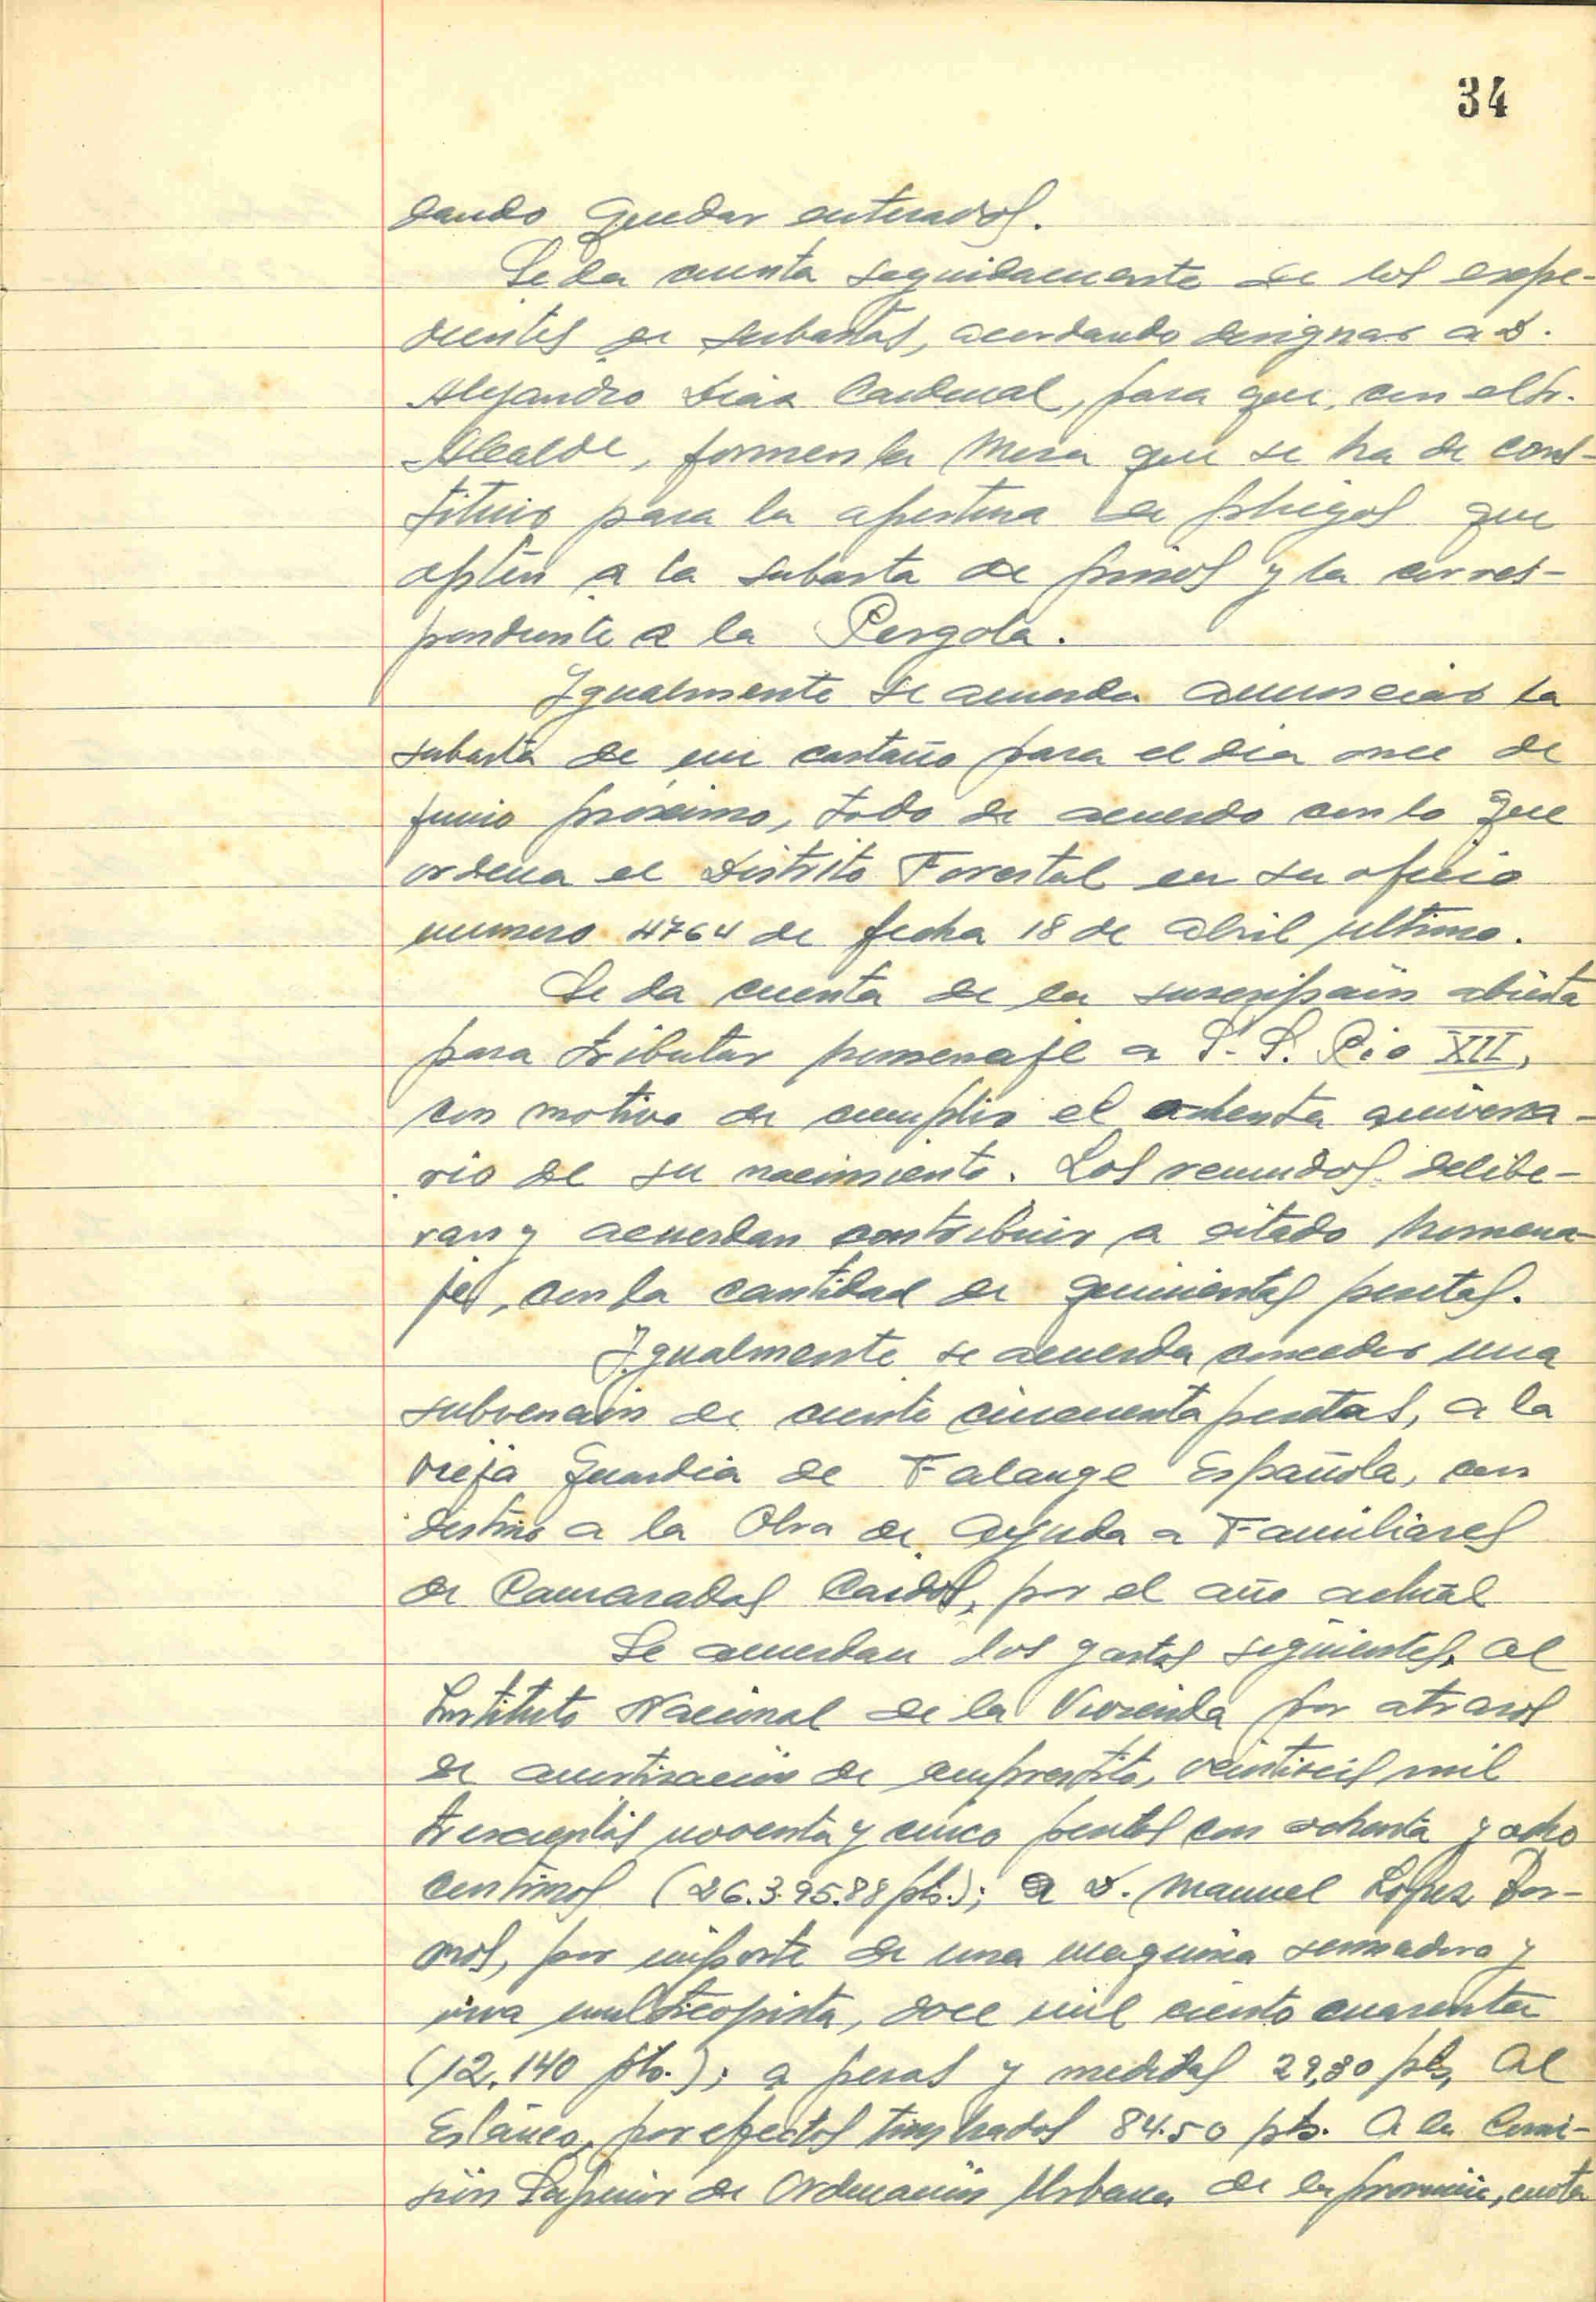 34
dando quedar enterados.
Se da cuenta seguidamente de los expe-
dientes de subastas, acordando designar a D.
Alejandro Dias Cardenal, para que, con el Sr.
Alcalde, formen la Mesa que se ha de cons-
tituir para la apertura de pliegos que
opten a la subasta de pinos y la corres-
pondiente a la Pergola.
Igualmente se acuerda anunciar la
subasta de un castaño para el dia once de
junio próximo, todo de acuerdo con lo que
ordena el Distrito Forestal en su oficio
numero 4764 de fecha 18 de abril ultimo.
Se da cuenta de la suscripción abierta
para tributar homenaje a S.S. Pio XII,
con motivo de cumplir el ochenta aniversa-
rio de su nacimiento. Los reunidos delibe-
ran y acuerdan contribuir a citado homena-
je, con la cantidad de quinientas pesetas.
Igualmente se acuerda conceder una
subvención de ciento cincuenta pesetas, a la
vieja Guardia de Falange Española, con
destino a la Obra de Ayuda a Familiares
de Camaradas Caidos, por el año actual
Se acuerdan los gastos siguientes, al
Instituto Nacional de la Vivienda por atrasos
de amortización de emprestito, veintiseis mil
trescientas noventa y cinco pesetas con ochenta y ocho
centimos (26.395.88 pts.); a D. Manuel Lopez
mos, por importe de una maquina sumadora y
una multicopista, doce mil ciento cuarenta
(12.140 pts.); a pesas y medidas 29,80 pts, Al
Estanco, por efectos timbrados 84.50 pts. A la Comi-
sión Superior de Ordenación Urbana de la provincia, cuota